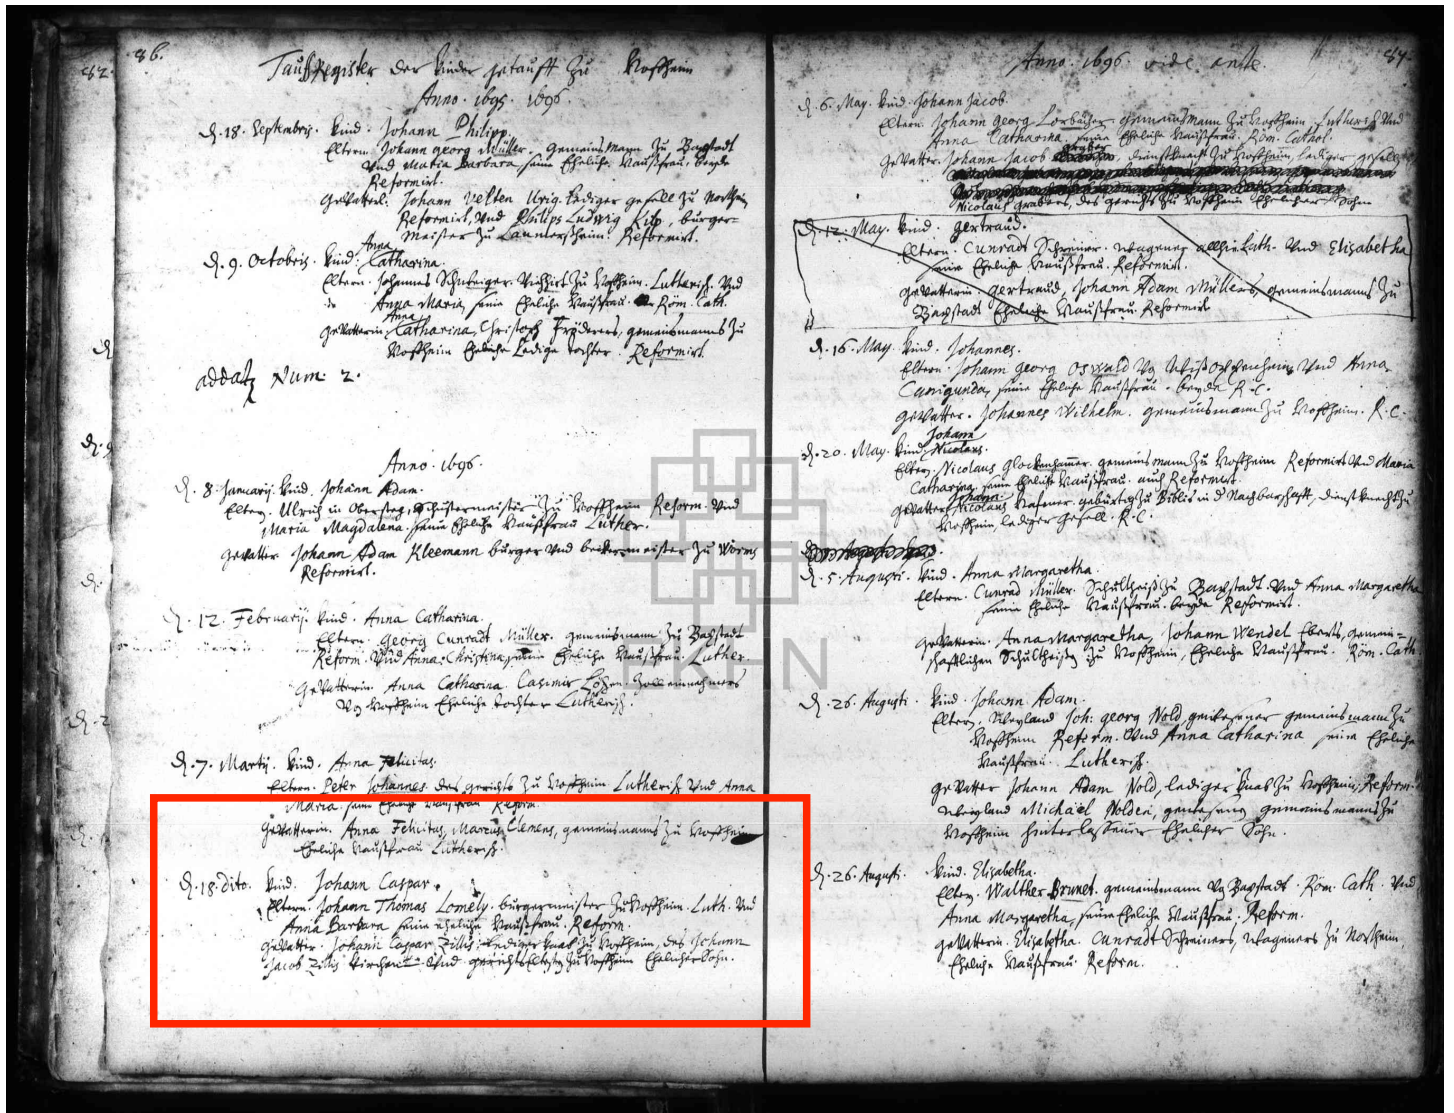 82.
86.
Tauffregister der kinder getaufft zu Hoffheim
Anno. 1695. 1696.
d. 18. Septembris. kind. Johann Philipp.
Eltern. Johann georg Müller. gemeinsmann zu
und Maria Barbara seine Eheliche Haußfrau. beyde
Reformirt.
gevatter. Johann Velten lediger gesell zu Northeim
Reformirt, und Philips Ludwig burger-
meister zu Reformirt.
Anna
d. 9. Octobris. kind. Catharina.
Eltern. Johannes zu Hoffheim. Lutherisch und
Anna Maria, seine Eheliche Haußfrau. Röm. Cath.
Anna
gevatterin. Catharina, Christoph gemeinsmanns zu
Hoffheim Eheliche Ledige tochter. Reformirt.
addatz Num. 2.
Anno. 1696.
d. 8. January. kind. Johann Adam.
Eltern. Ulrich zu Hoffheim Reform. und
Maria Magdalena. seine Eheliche Haußfrau Luther.
gevatter Johann Adam Kleemann burger und beckermeister zu Worms
Reformirt.
d. 12. February. kind. Anna Catharina.
Eltern. Georg Cunradt Müller. gemeinsmann zu
Reform. und Anna Christina, seine Eheliche Haußfrau. Luther.
gevatterin. Anna Catharina. Casimir zolleinnehmers
zu Hoffheim Eheliche tochter Lutherisch.
d. 7. Marty. kind. Anna Felicitas.
Eltern. Peter Johannes des gerichts zu Hoffheim Lutherisch und Anna
Maria. seine Eheliche Haußfrau Reform.
gevatterin. Anna Felicitas, Marcus Clemens, gemeinsmanns zu Hoffheim
Eheliche Haußfrau Lutherisch.
d. 18. dito. kind. Johann Caspar.
Eltern. Johann Thomas Lomely. burgermeister zu Hoffheim. Luth. und
Anna Barbara seine eheliche Haußfrau. Reform.
gevatter. Johann Caspar Zillis. lediger knab zu Hoffheim, des Johann
Jacob Zillis kirchen und gerichts Eltesten zu Hoffheim Ehelicher Sohn.
Anno. 1696. vide ante.
87.
d. 6. May. kind. Johann Jacob.
Eltern. Johann Georg gemeinsmann zu Hoffheim. Lutherisch und
Anna Catharina, seine Eheliche Haußfrau. Röm. Cathol.
gevatter. Johann Jacob graber dienstknecht zu Hoffheim, lediger gesell
Nicolaus grabers, des gerichts zu Hoffheim Ehelicher Sohn
d. 12. May. kind. gertraud.
Eltern. Cunradt Schreiner. wagener allhie Luth. und Elisabetha
seine Eheliche Haußfrau. Reformirt.
gevatterin. gertraud, Johann Adam Müllers, gemeinsmanns zu
Eheliche Haußfrau. Reformirt
d. 16. May. kind. Johannes.
Eltern. Johann georg Oswald und Anna
Cunigunda, seine Eheliche Haußfrau. beyde R. C.
gevatter. Johannes Wilhelm. gemeinsmann zu Hoffheim. R. C.
Johann
d. 20. May. kind. Nicolaus.
Eltern. Nicolaus Glockenhammer. gemeinsmann zu Hoffheim Reformirt und Maria
Catharina, seine Eheliche Haußfrau. auch Reformirt.
Johann
gevatter. Nicolaus Hafener. gebürtig zu Biblis in d Nachbarschafft, dienstknecht zu
Hoffheim, lediger gesell. R. C.
d. 5. Augusti. kind. Anna Margaretha.
Eltern. Cunrad Müller. Schultheiß zu und Anna Margaretha
seine Eheliche Haußfrau. beyde Reformirt.
gevatterin. Anna Margaretha, Johann Wendel Eberts, gemein-
schafftlichen Schultheißen zu Hoffheim, Eheliche Haußfrau. Röm. Cath.
d. 26. Augusti. kind. Johann Adam.
Eltern, weyland Joh: georg Nold, gewesener gemeinsmann zu
Hoffheim Reform. und Anna Catharina seine Eheliche
Haußfrau. Lutherisch.
gevatter Johann Adam Nold, lediger knab zu Hoffheim, Reform.
weyland Michael Nolden, gewesenen gemeinsmanns zu
Hoffheim hinterlassener Ehelicher Sohn.
d. 26. Augusti. kind. Elisabetha.
Eltern. Walther Brunet. gemeinsmann Röm. Cath. und
Anna Margaretha, seine Eheliche Haußfrau. Reform.
gevatterin. Elisabetha. Cunradt Schreiners, wageners zu Northeim,
Eheliche Haußfrau. Reform.
EKHN